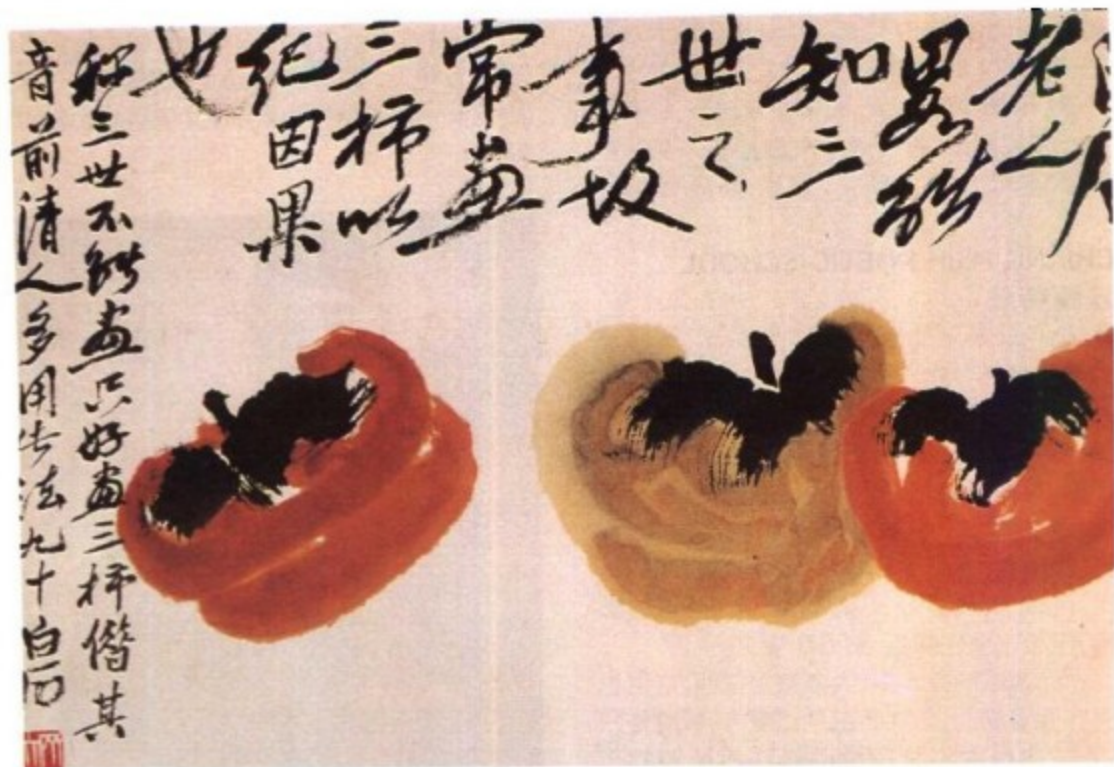 老人
畧能
知三
世之
事故
常畫
三柿以
紀因果
也
称三世不能畫只好畫三柿僭其
音前清人多用此法九十白石